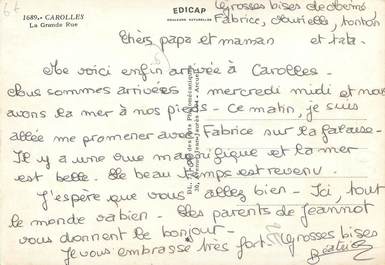 6t
1689.- CAROLLES
La Grande Rue
EDICAP
COULEURS NATURELLES
Grosses bises de
Fabrice, Murielle, tonton
et tata.
Chers papa et maman
Me voici enfin arrivée à Carolles.
Nous sommes arrivées mercredi midi et nous
avons la mer à nos pieds. Ce matin, je suis
allée me promener avec Fabrice sur la falaise.
Il y a une vue magnifique et la mer
est belle. Le beau temps est revenu.
J'espère que vous allez bien. Ici, tout
le monde va bien. Les parents de Jeannot
vous donnent le bonjour.
Je vous embrasse très fort. Grosses bises
Béatrice